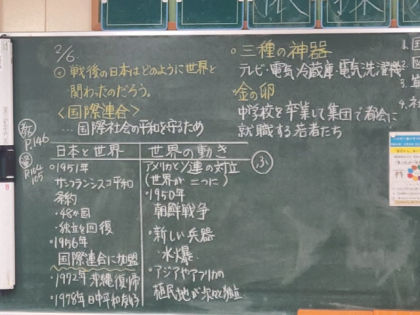 2/6
◎ 戦後の日本はどのように世界と
関わったのだろう。
〈国際連合〉
…国際社会の平和を守るため
教
P.146
日本と世界
・1951年
サンフランシスコ平和
条約
・48か国
・独立を回復
・1956年
国際連合に加盟
・1972年 沖縄復帰
・1978年 日中平和友好
世界の動き
アメリカとソ連の対立
(世界が二つに)
・1950年
朝鮮戦争
・新しい兵器
・水爆
・アジアやアフリカの
植民地が次々と独立
ふ
・三種の神器
テレビ・電気冷蔵庫・電気洗濯機
・金の卵
中学校を卒業して集団で都会に
就職する若者たち